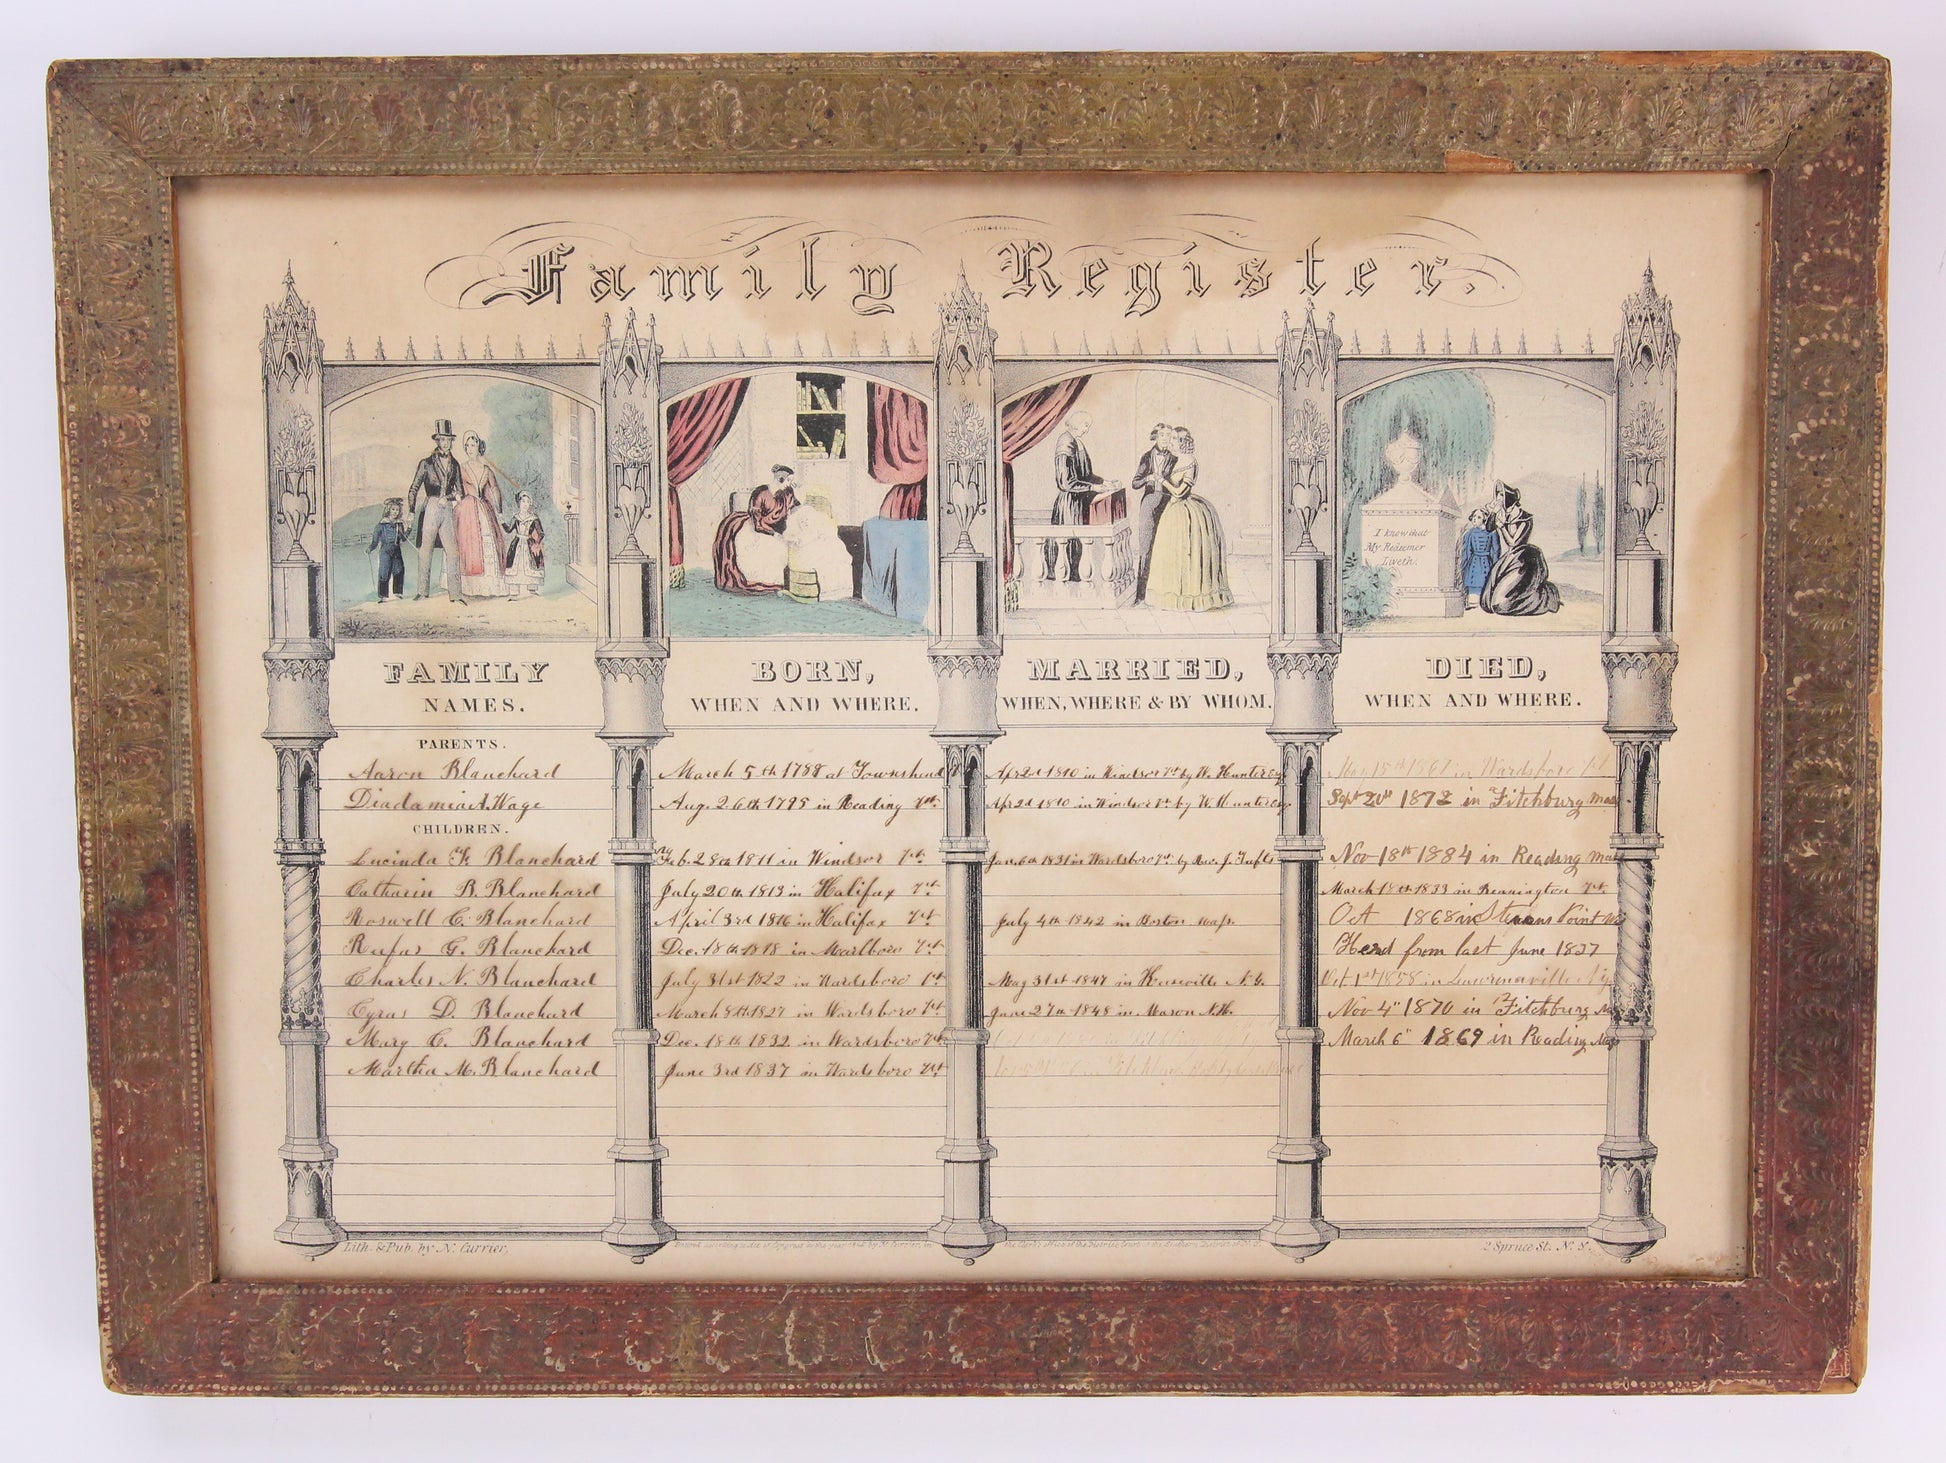 Family Register.
I know that
My Redeemer
Liveth.
FAMILY
NAMES.
BORN,
WHEN AND WHERE.
MARRIED,
WHEN, WHERE & BY WHOM.
DIED,
WHEN AND WHERE.
PARENTS.
Aaron Blanchard March 5th 1788 at Townshend Apr 2d 1810 in Windsor Vt by W. Hunter Esq May 15th 1867 in Wardsboro Vt
Diadamia A. Wage Aug. 26th 1795 in Reading Vt. Apr 2d 1810 in Windsor Vt by W. Hunter Esq Sept 20th 1872 in Fitchburg Mass
CHILDREN.
Lucinda F. Blanchard Feb. 28th 1811 in Windsor Vt. Jan. 6th 1831 in Wardsboro Vt. by Rev. J. Tufts Nov 18th 1884 in Reading Mass
Catharin B. Blanchard July 20th 1813 in Halifax Vt. March 18th 1833 in Bennington Vt.
Roswell C. Blanchard April 3rd 1816 in Halifax Vt. July 4th 1842 in Boston Mass. Oct 1868 in Stevens Point Wis
Rufus G. Blanchard Dec. 18th 1818 in Marlboro Vt. Herd from last June 1837
Charles N. Blanchard July 31st 1822 in Wardsboro Vt. May 31st 1847 in N.Y. Oct 1st 1858 in Lawrenceville N.Y.
Cyrus D. Blanchard March 8th 1827 in Wardsboro Vt. June 27th 1848 in Mason N.H. Nov 4" 1870 in Fitchburg
Mary C. Blanchard Dec. 18th 1832 in Wardsboro Vt. March 6" 1869 in Reading Mass
Martha M. Blanchard June 3rd 1837 in Wardsboro Vt.
Lith. & Pub. by N. Currier,
2 Spruce St. N.Y.